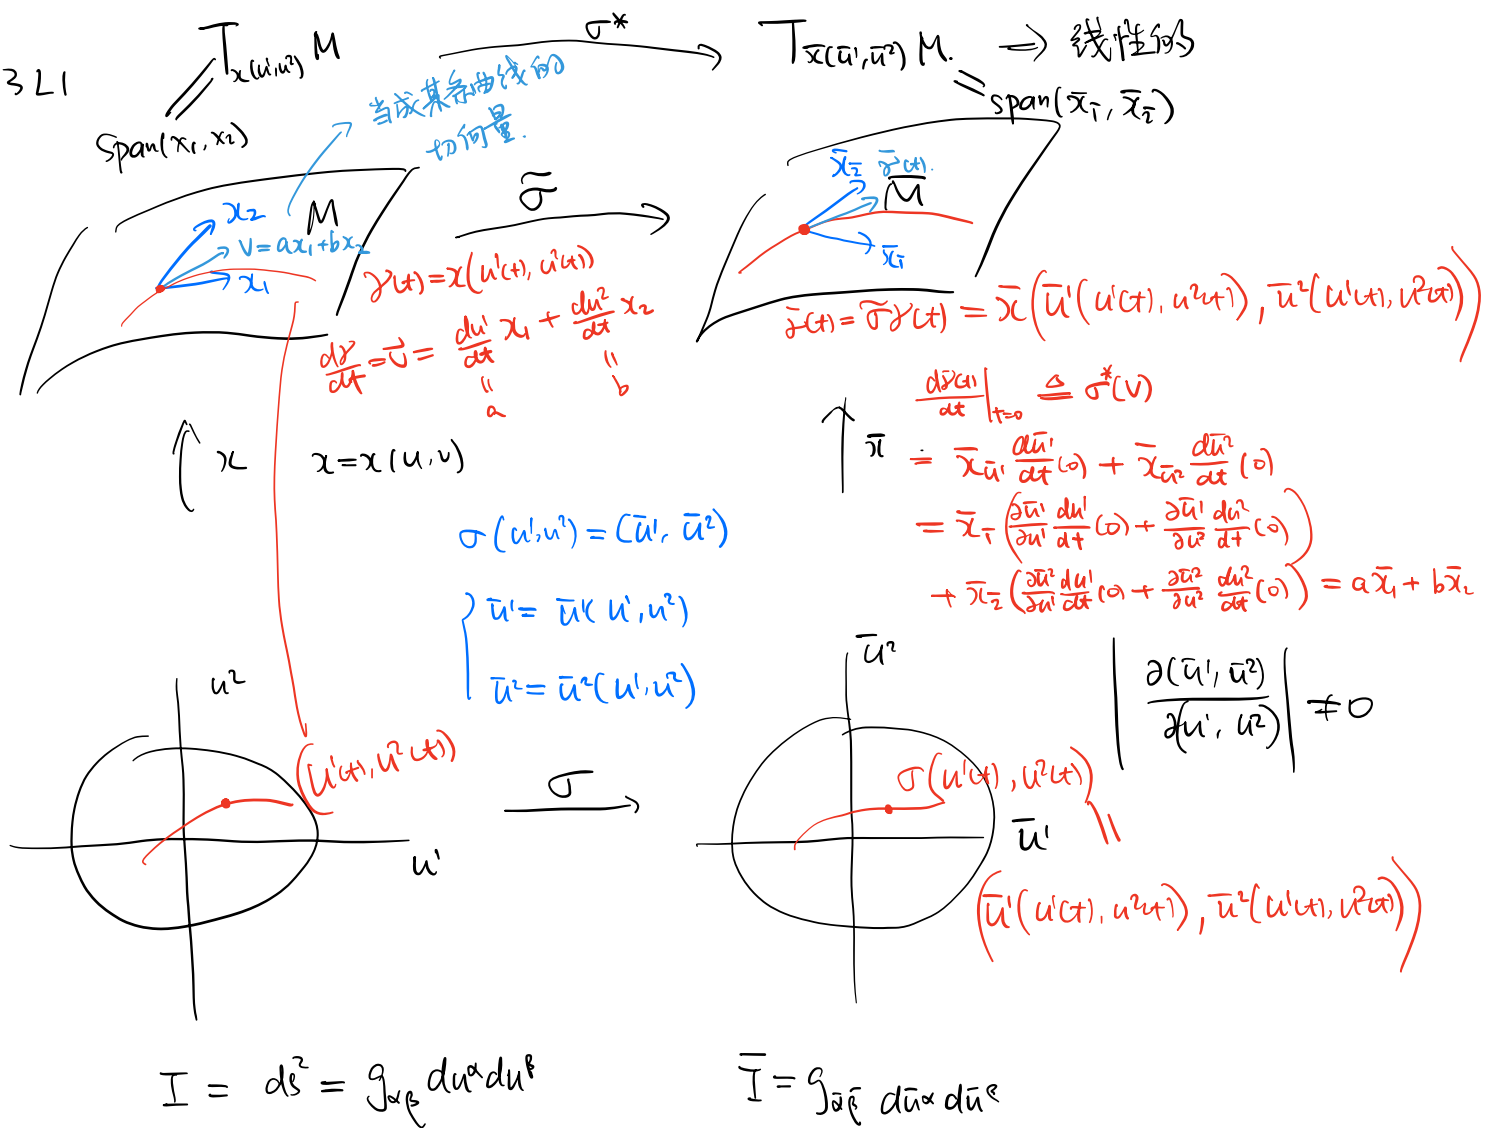 3L1
T_{x(u¹,u²)} M
σ*
T_{x̄(ū¹,ū²)} M. → 线性的
span(x₁, x₂)
span(x̄_1̄, x̄_2̄)
当成某条曲线的
切向量.
x₂
M
v = ax₁+bx₂
x₁
σ̃
x̄_2̄
γ̄(t).
M̄
x̄_1̄
γ(t) = x(u¹(t), u²(t))
dγ/dt = v⃗ = du¹/dt x₁ + du²/dt x₂
=
a
=
b
γ̄(t) = σ̃γ(t) = x̄(ū¹(u¹(t), u²(t)), ū²(u¹(t), u²(t)))
dγ̄(t)/dt |_{t=0} ≜ σ*(v)
= x̄_{ū¹} dū¹/dt (0) + x̄_{ū²} dū²/dt (0)
= x̄_1̄ (∂ū¹/∂u¹ du¹/dt (0) + ∂ū¹/∂u² du²/dt (0))
+ x̄_2̄ (∂ū²/∂u¹ du¹/dt (0) + ∂ū²/∂u² du²/dt (0)) = ax̄₁ + bx̄₂
x
x = x(u, v)
x̄
σ(u¹, u²) = (ū¹, ū²)
ū¹ = ū¹(u¹, u²)
ū² = ū²(u¹, u²)
u²
(u¹(t), u²(t))
u¹
σ
ū²
|∂(ū¹, ū²)/∂(u¹, u²)| ≠ 0
σ(u¹(t), u²(t))
ū¹
=
(ū¹(u¹(t), u²(t)), ū²(u¹(t), u²(t)))
I = ds² = g_{αβ} du^α du^β
Ī = g_{ᾱβ̄} dū^α dū^β